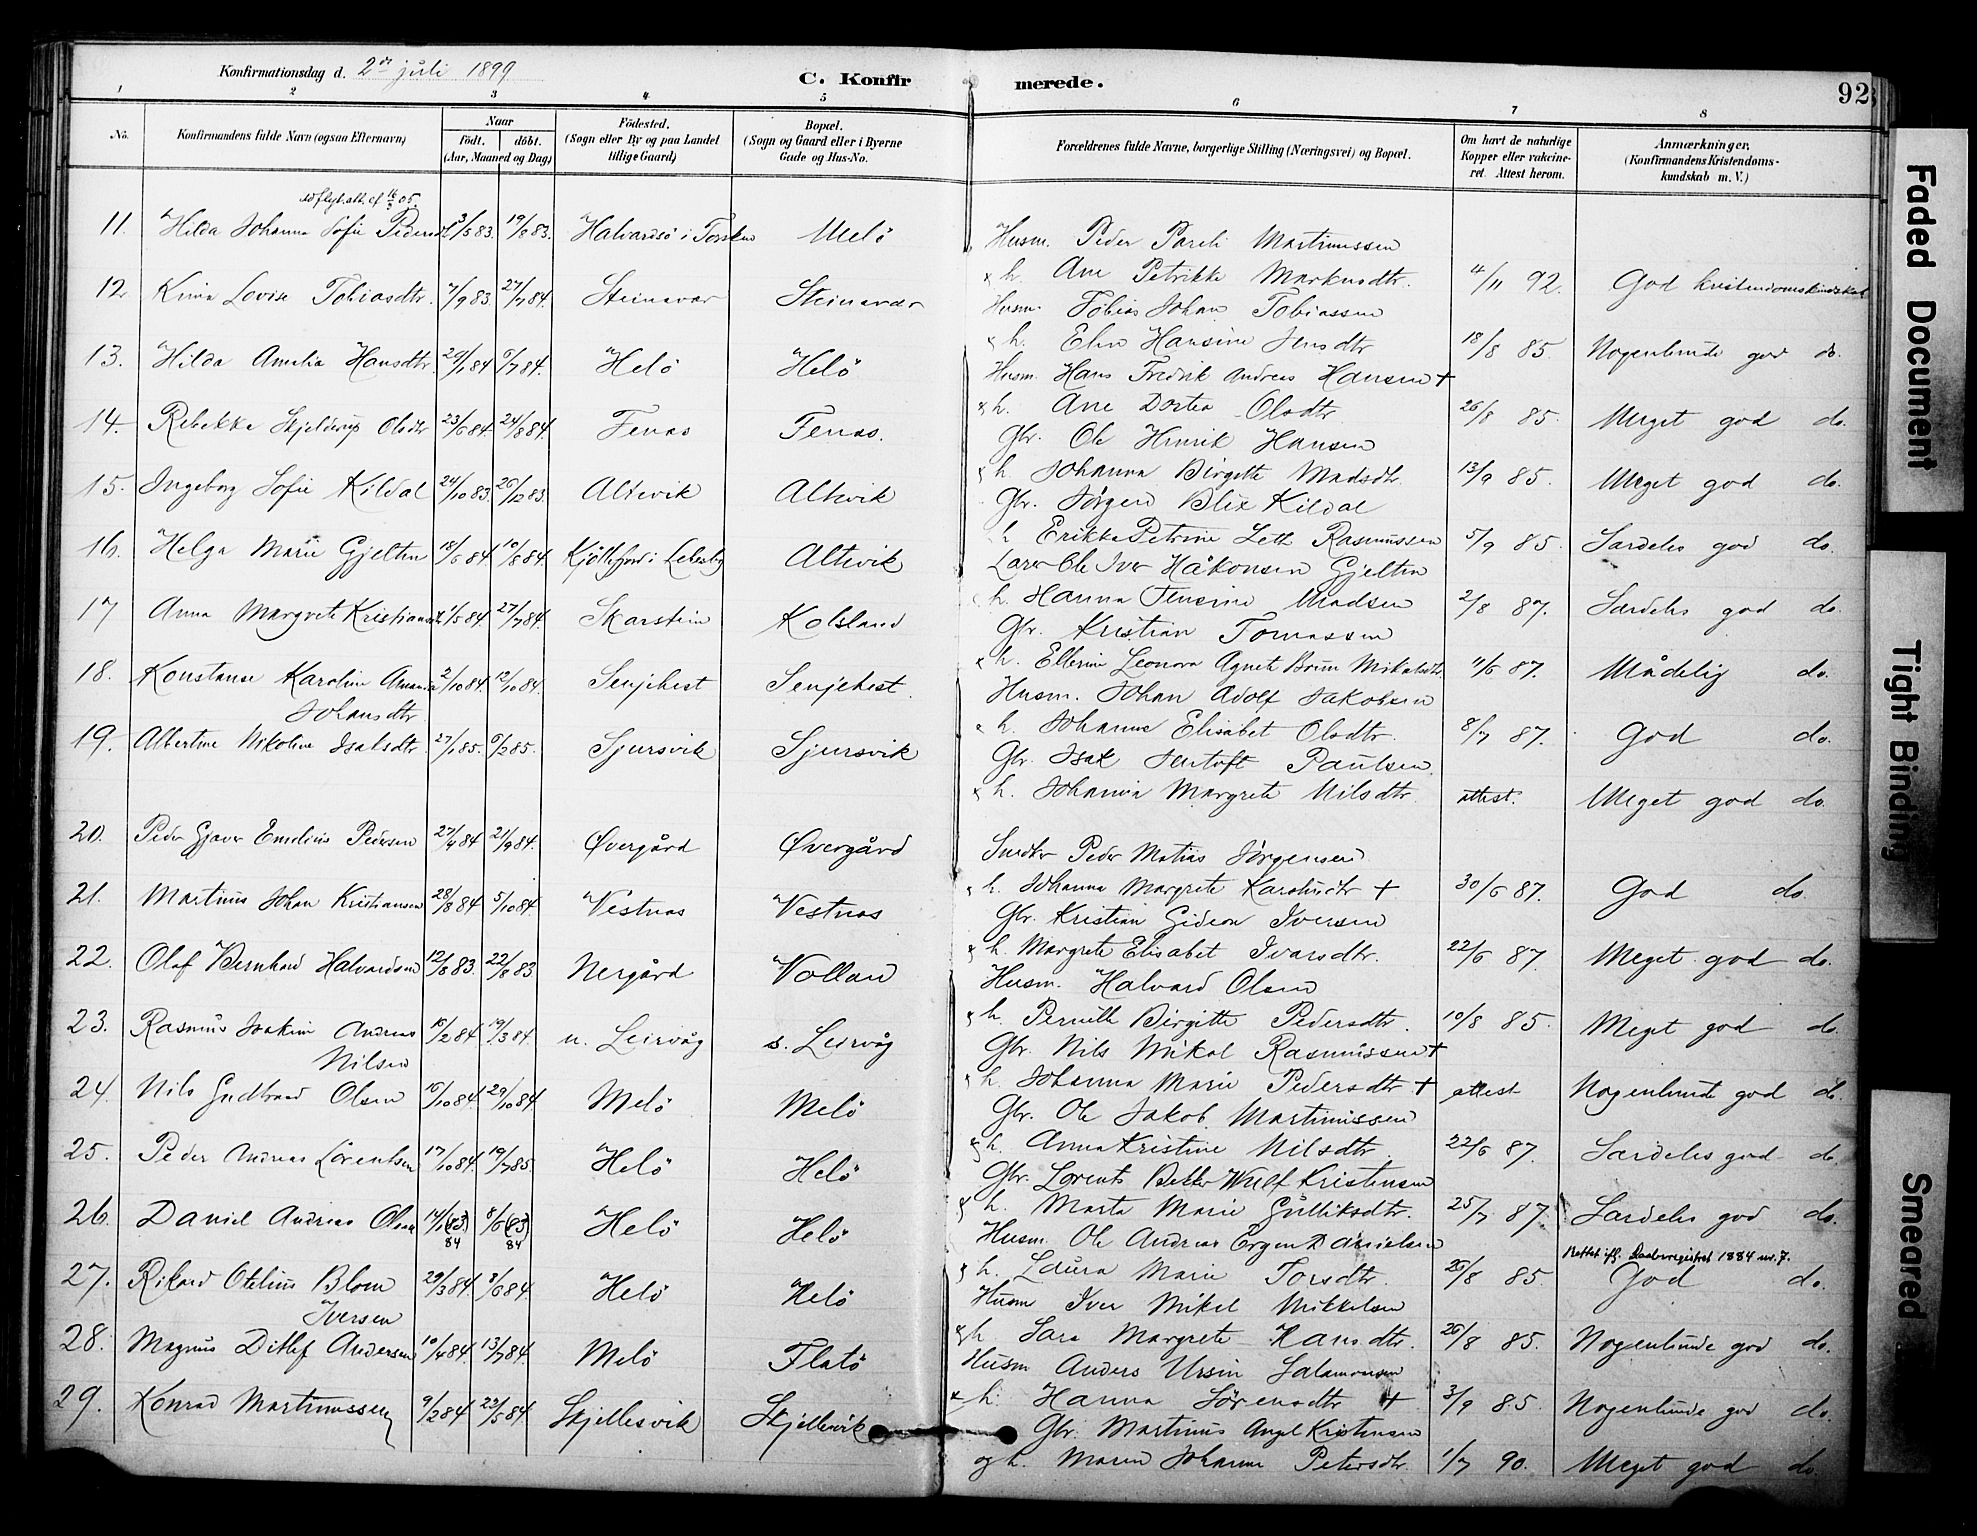 Konfirmationsdag d. 2den juli 1899
C. Konfirmerede.
92
1 2 3 4 5 6 7 8
No. Konfirmandens fulde Navn (ogsaa Efternavn) Naar födt. döbt. (Aar, Maaned og Dag) Födested. (Sogn eller By og paa Landet tillige Gaard) Bopæl. (Sogn og Gaard eller i Byerne Gade og Hus-No. Forældrenes fulde Navne, borgerlige Stilling (Næringsvei) og Bopæl. Om havt de naturlige Kopper eller vakcineret. Attest herom. Anmærkninger. (Konfirmandens Kristendomskundskab m. V.)
11. Hilda Johanna Sofie 3/5 83. 19/8 83. Melö Husm. Peder Martinussen
& h. Ane Petrikke Markusdtr. 4/11 92. God kristendomskundskab
12. Lovise Tobiasdtr. 7/9 83 27/7 84. Steinavær Steinavær Husm. Tobias Johan Tobiassen
& h. Elen Hansine Jensdtr 18/8 85. Nogenlunde god do.
13. Hilda Amalia Hansdtr. Helö Helö Husm. Hans Fredrik Andreas Hansen +
& h. Ane Dortea Olsdtr. 26/8 85. Meget god do.
14. Rebekke Skjelderup Olsdtr 23/6 84. 24/8 84. Tenas Tenas. Gbr. Ole Henrik Hansen
& h. Johanna Birgitte Madsdtr. 13/9 85. Meget god do.
15. Ingeborg Sofie Kildal 24/10 83. 26/12 83. Altevik Altevik Gbr. Jørgen Blix Kildal
h. Erikka Petrine Leth Rasmussen 5/9 85. Særdeles god do.
16. Helga Marie Gjelten 18/6 84. 10/8 84. Kjöllefjord i Lebesby Altevik Lærer Ole Iver Håkonsen Gjelten
h. Hanna Jensine Madsen 2/8 87. Særdeles god do.
17 Anna Margrete 27/7 84. Skarstein Kolsland Gbr. Kristian Tomassen
& h. Ellerine Leonora Agnete Mikalsdtr. 11/6 87. Mådelig do.
18. Konstanse Karoline 2/10 84. 12/10 84. Senjehest Senjehest. Husm. Johan Adolf Jakobsen
Johansdtr.
& h. Johanne Elisabet Olsdtr. 8/7 87. God do.
19. Albertine Nikoline Isaksdtr. Sjursvik Sjursvik Gbr. Isak Paulsen
& h. Johanna Margrete Nilsdtr. attest. Meget god do.
20. Peder Emelius Pedersen 21/9 84. Øvergård Øvergård Peder Matias Jørgensen
& h. Johanna Margrete + 30/6 87. God do.
21. Martinus Johan Kristiansen 28/8 84 5/10 84. Vestnes Vestnes Gbr. Kristian Gideon Iversen
& h. Margrete Elisabet Ivarsdtr. 22/6 87. Meget god do.
22. Olaf Bernhard Halvardsen 12/8 83. 22/8 83 Nergård Vollan Husm. Halvard Olsen
& h. Pernille Birgitte Pedersdtr. 10/8 85. Meget god do.
23. Rasmus Joakim Andreas 19/3 84 n. Leirvåg s. Leirvåg Gbr. Nils Mikal Rasmussen +
Nilsen
& h. Johanna Marie Pedersdtr + attest Nogenlunde god do.
24. Nils Gudbrand Olsen 29/10 84. Melö Melö Gbr. Ole Jakob Martinussen
& h. Anna Kristine Nilsdtr. 22/6 87. Særdeles god do.
25. Peder Andreas Lorentsen 17/10 84. 19/7 85. Helö Helö Gbr. Lorents Bekker Wulf Kristensen
& h. Marta Marie Gulliksdtr. 25/7 87. Særdeles god do.
26. Daniel Andreas Olsen 8/6 (83) 84 Helö Helö Husm. Ole Andreas Ergen Danielsen
Rettet ifl. Daabsregistret 1884 nr. 7.
& h. Laura Marie Torsdtr. 26/8 85. God do.
27. Rikard Otelius Blom 29/3 84. Helö Helö Husm Iver Mikel Mikkelsen
Iversen
& h. Sara Margrete Hansdtr. 26/8 85. Nogenlunde god do.
28. Magnus Ditlef Andersen 10/4 84. 13/7 84. Melö Flatö Husm Anders Ursin Salamonsen
& h. Hanna Sörensdtr + 3/9 85. Nogenlunde god do.
29. Konrad Martinussen 9/2 84 Skjellesvik Skjellesvik Gbr. Martinus Angel Kristensen
og h. Maren Johanne Petersdtr. 1/7 90. Meget god do.
Faded Document
Tight Binding
Smeared